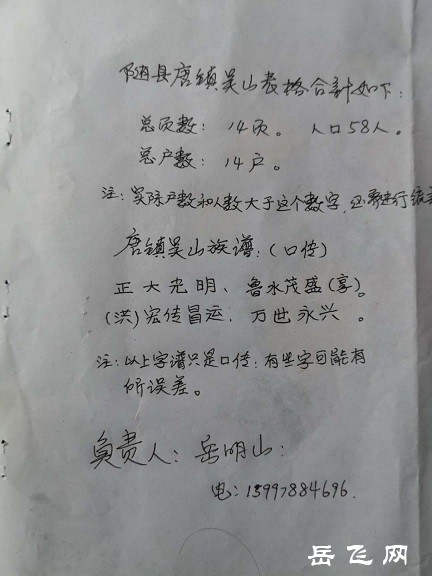 随县唐镇吴山表格合計如下:
总页数: 14页。 人口58人。
总户数: 14户。
注:实际户数和人数大于这个数字,还需进行统
唐镇吴山族谱:(口传)
正大光明、鲁水茂盛(享)。
(洪)宏传冒运、万世永兴。
注:以上字谱只是口传:有些字可能有
所误差。
负责人:岳明山:
电:13997884696.
岳飞网